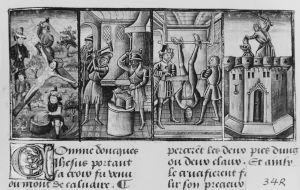 Comme doncques
Ihesus portant
sa croix fu venu
ou mont de calvaire. ¶
percerēt les deux piez dung
ou deux claux. Et ainsy
le crucifierent
sur son precieux
34R